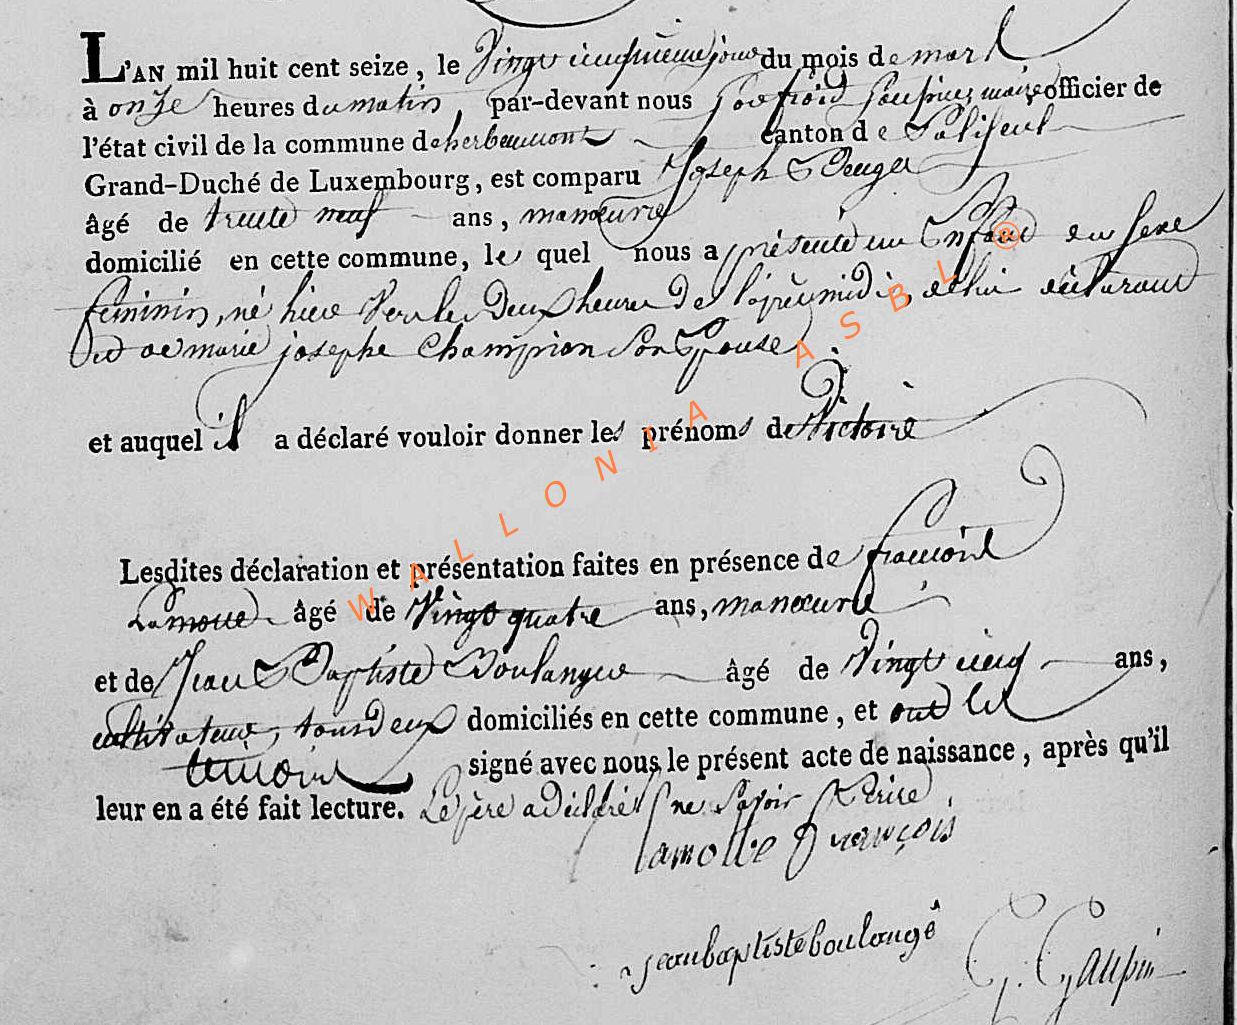 L'AN mil huit cent seize, le vingt cinquieme jour du mois de mars
à onze heures du matin, par-devant nous maire officier de
l'état civil de la commune de herbeumont canton de Paliseul
Grand-Duché de Luxembourg, est comparu Joseph
âgé de trente neuf ans, manœuvre
domicilié en cette commune, le quel nous a présenté un Enfant du sexe
feminin, né hier vers les deux heures de l'aprèsmidi, de lui déclarant
et de marie josephe Champion son Epouse
et auquel il a déclaré vouloir donner les prénoms de Victoire
Lesdites déclaration et présentation faites en présence de francois
Lamotte âgé de Vingt quatre ans, manœuvre
et de Jean Baptiste Boulanger âgé de Vingt cinq ans,
cultivateur, tous deux domiciliés en cette commune, et ont les
temoins signé avec nous le présent acte de naissance, après qu'il
leur en a été fait lecture. Le père a déclaré ne savoir Ecrire
lamotte François
jean baptiste boulangé
G. Gaupin
WALLONIA ASBL @